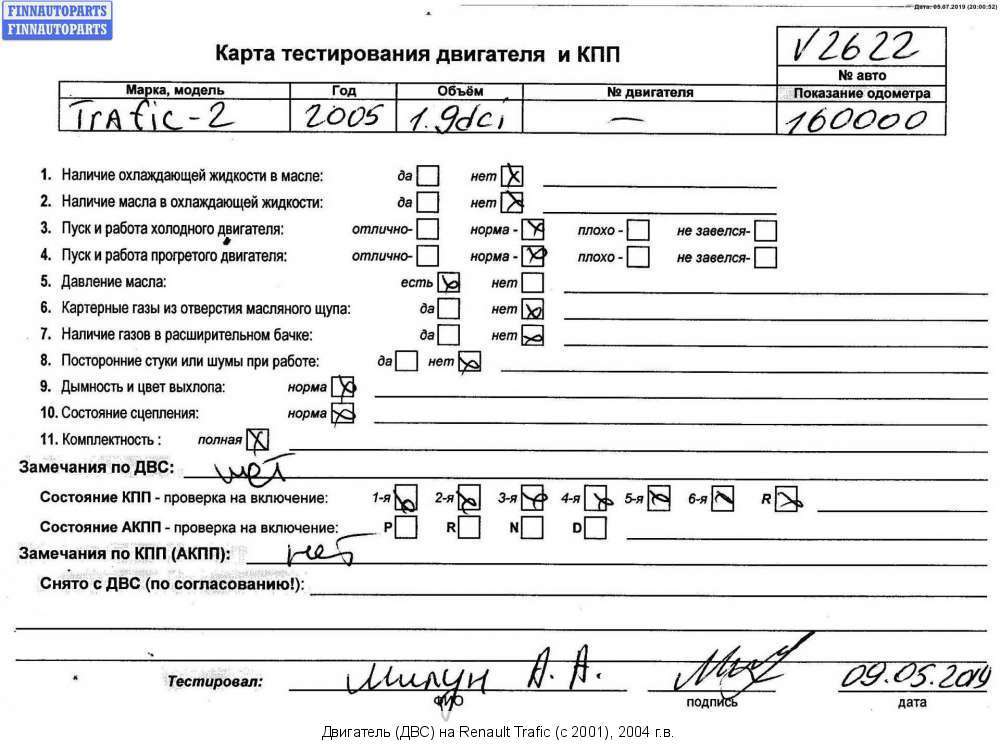 Дата: 05.07.2019 (20:00:52)
FINNAUTOPARTS
FINNAUTOPARTS
Карта тестирования двигателя и КПП
V2622
№ авто
Марка, модель Год Объём № двигателя Показание одометра
Trafic-2 2005 1.9dci — 160000
1. Наличие охлаждающей жидкости в масле: да нет
2. Наличие масла в охлаждающей жидкости: да нет
3. Пуск и работа холодного двигателя: отлично- норма - плохо - не завелся-
4. Пуск и работа прогретого двигателя: отлично- норма - плохо - не завелся-
5. Давление масла: есть нет
6. Картерные газы из отверстия масляного щупа: да нет
7. Наличие газов в расширительном бачке: да нет
8. Посторонние стуки или шумы при работе: да нет
9. Дымность и цвет выхлопа: норма
10. Состояние сцепления: норма
11. Комплектность : полная
Замечания по ДВС: нет
Состояние КПП - проверка на включение: 1-я 2-я 3-я 4-я 5-я 6-я R
Состояние АКПП - проверка на включение: P R N D
Замечания по КПП (АКПП): нет
Снято с ДВС (по согласованию!):
Тестировал: Милун А. А. 09.05.2019
ФИО подпись дата
Двигатель (ДВС) на Renault Trafic (с 2001), 2004 г.в.